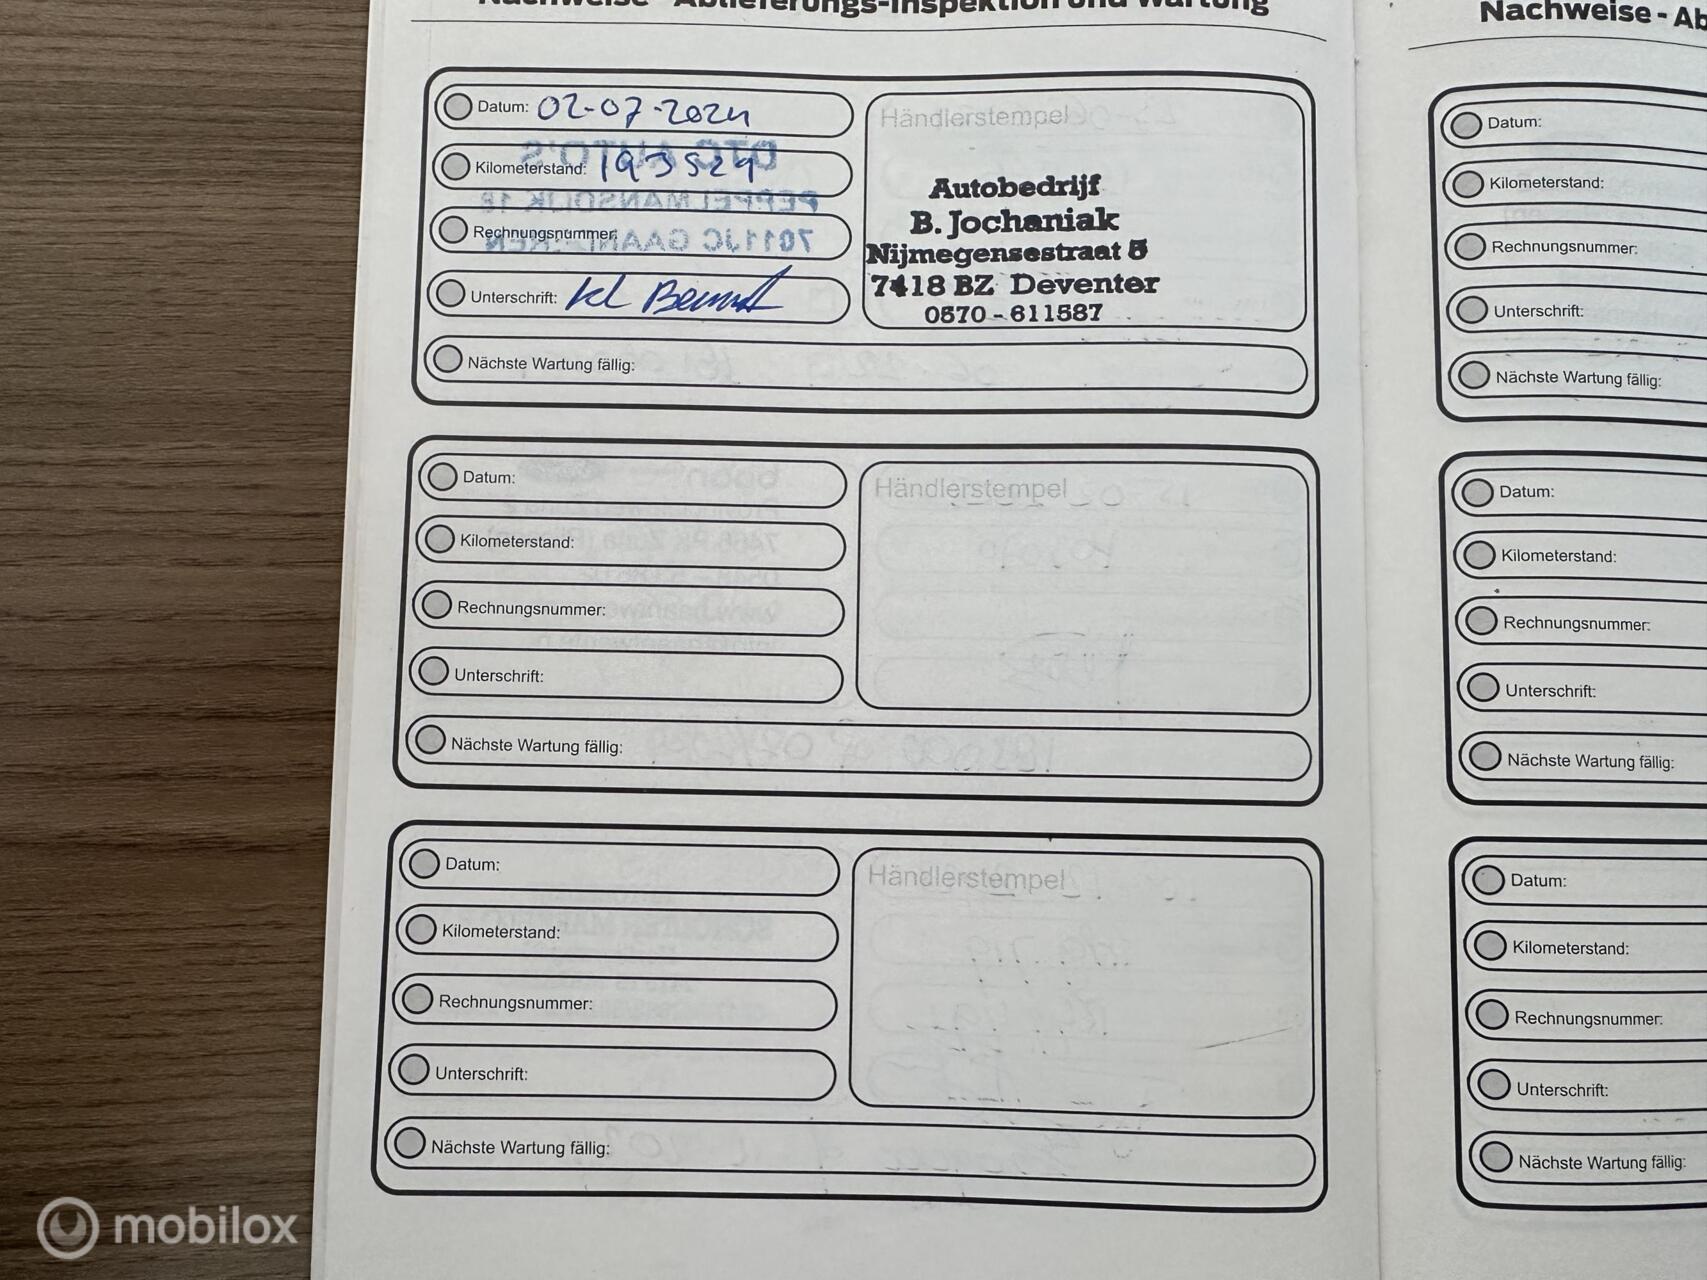 Nachweise - Ablieferungs-Inspektion und Wartung
Datum: 02-07-2024
Kilometerstand: 193529
Rechnungsnummer:
Unterschrift:
Nächste Wartung fällig:
Händlerstempel
Autobedrijf
B. Jochaniak
Nijmegensestraat 5
7418 BZ Deventer
0570 - 611587
Datum:
Kilometerstand:
Rechnungsnummer:
Unterschrift:
Nächste Wartung fällig:
Händlerstempel
Datum:
Kilometerstand:
Rechnungsnummer:
Unterschrift:
Nächste Wartung fällig:
Händlerstempel
Nachweise - Ab
Datum:
Kilometerstand:
Rechnungsnummer:
Unterschrift:
Nächste Wartung fällig:
Datum:
Kilometerstand:
Rechnungsnummer:
Unterschrift:
Nächste Wartung fällig:
Datum:
Kilometerstand:
Rechnungsnummer:
Unterschrift:
Nächste Wartung fällig:
mobilox